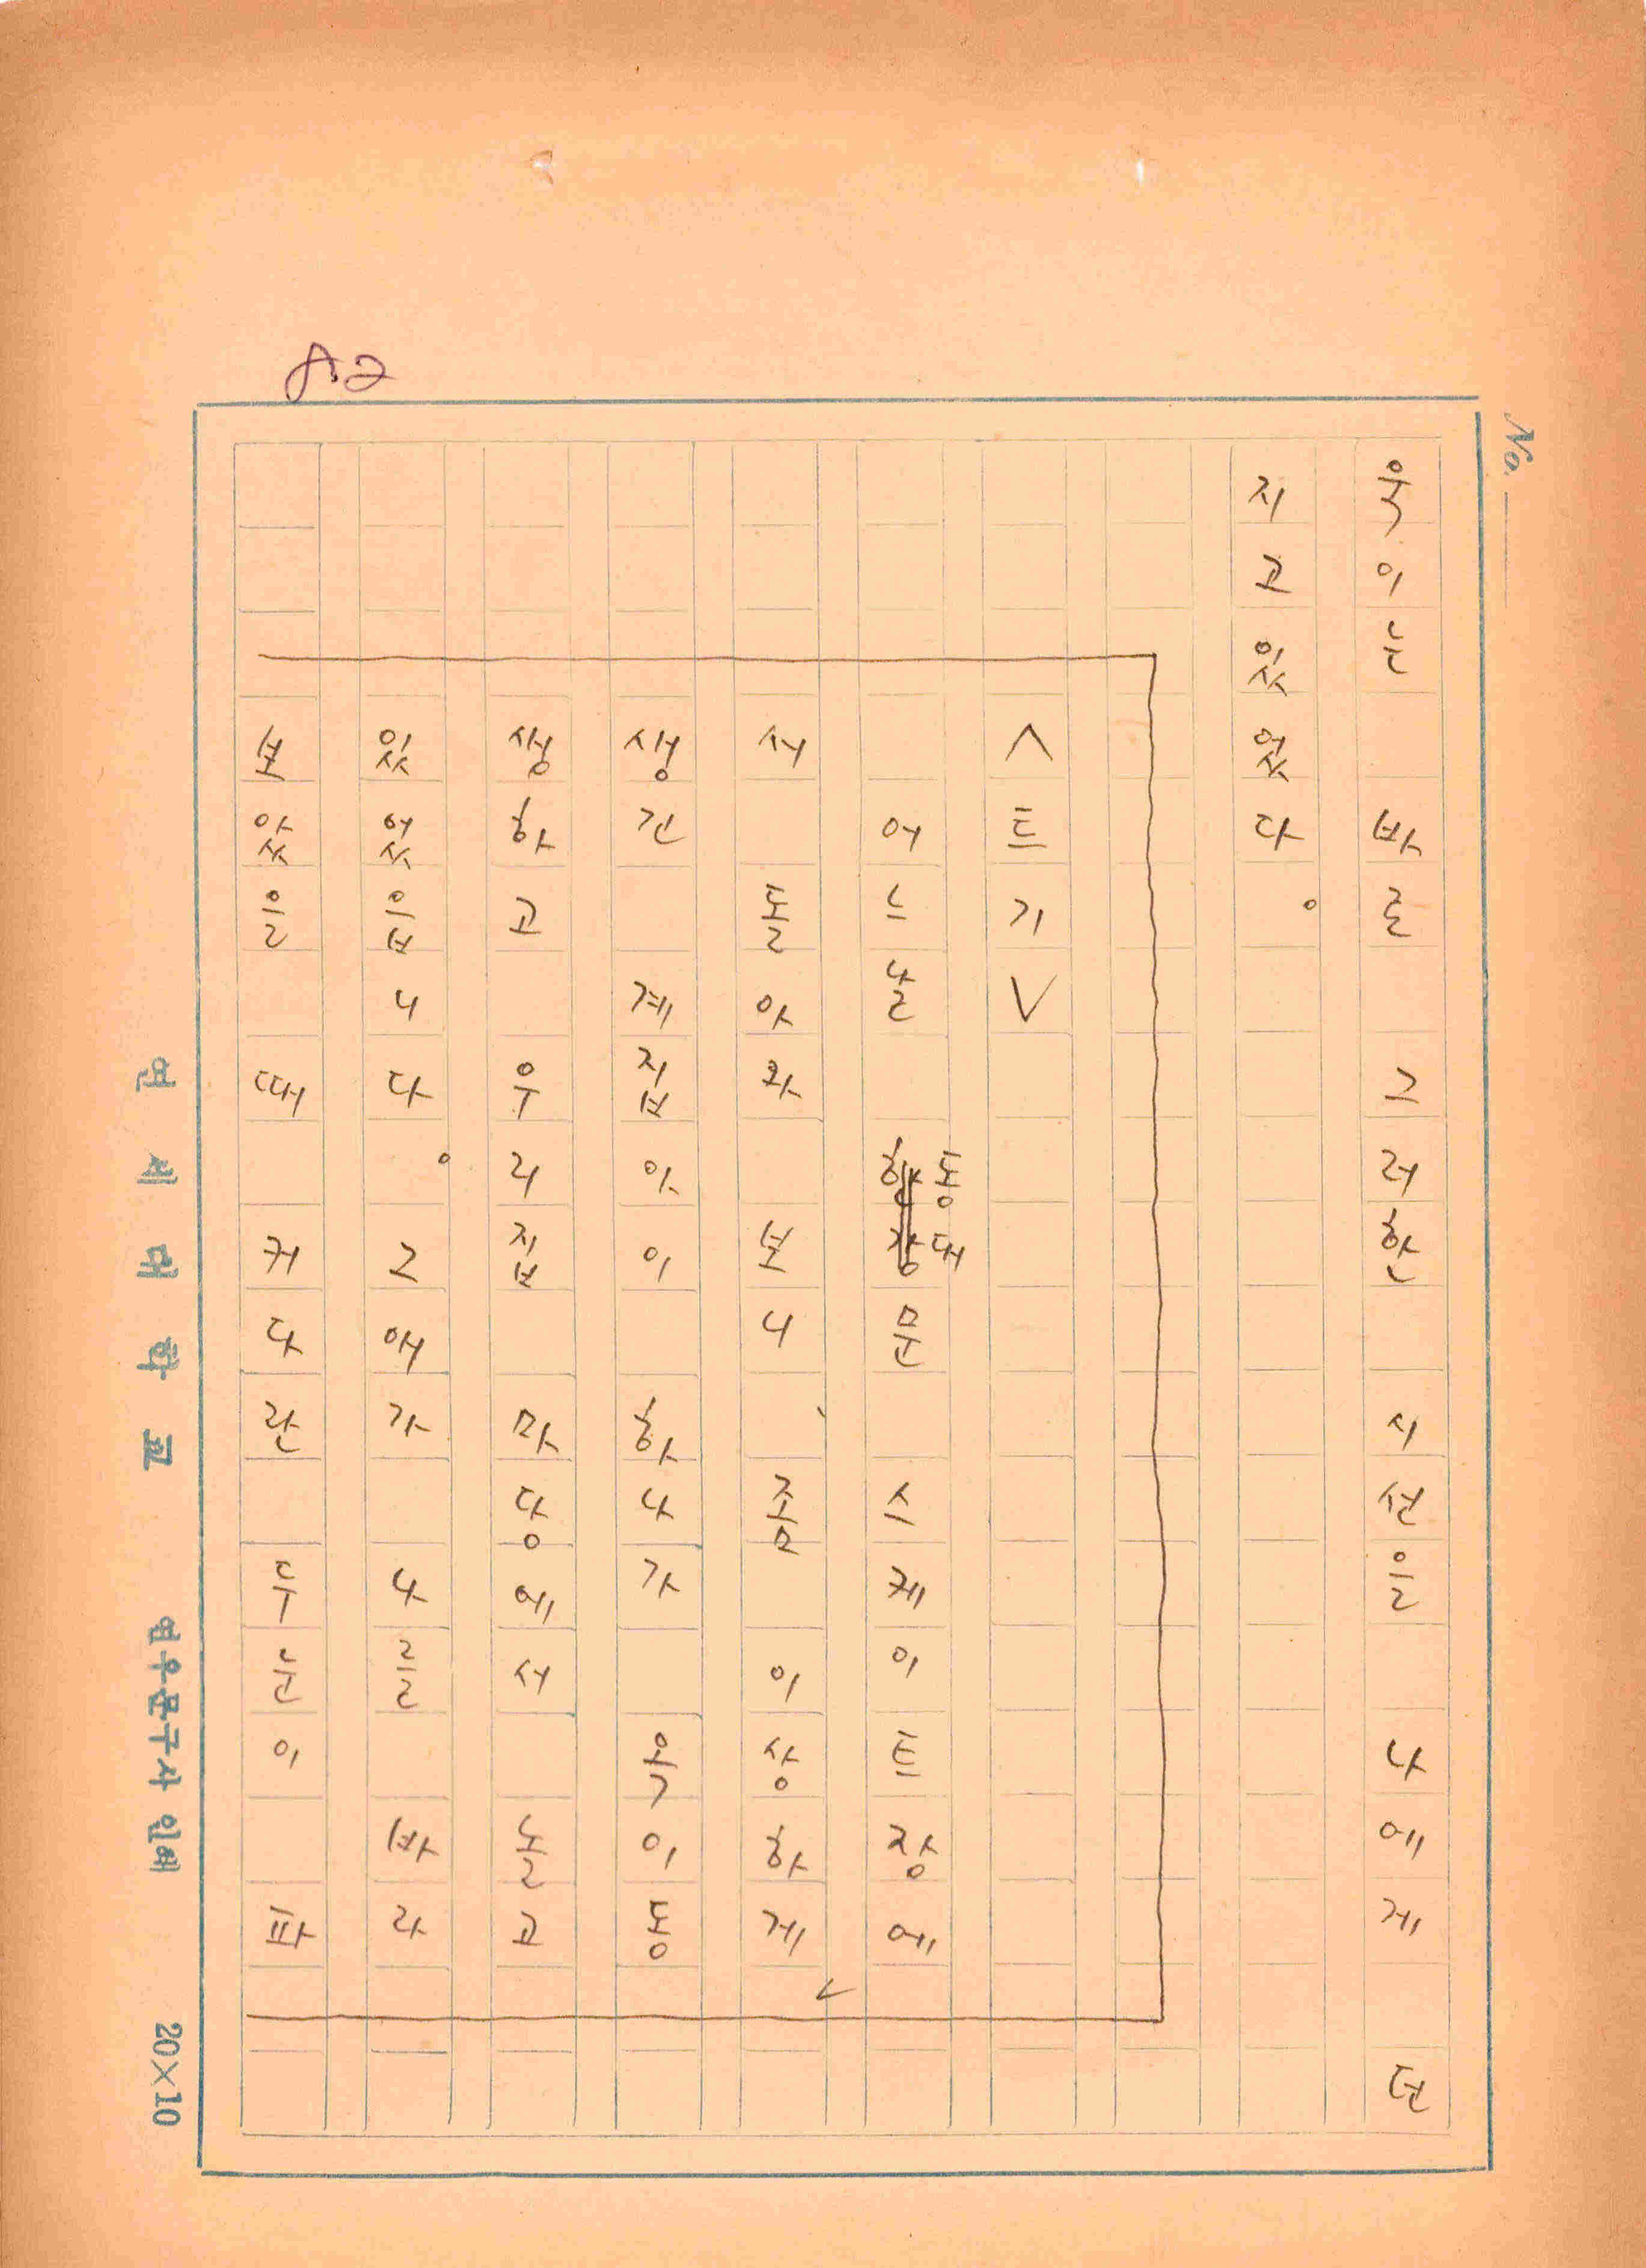 No.
욱이는 바로 그러한 시선을 나에게 던
지고 있었다.
<트기>
어느날 동대문 스케이트장에
서 돌아와 보니, 좀 이상하게
생긴 계집아이 하나가 욱이동
생하고 우리집 마당에서 놀고
있었읍니다. 그애가 나를 바라
보았을 때 커다란 두눈이 파
연세대학교 연우문구사 인쇄 20×10